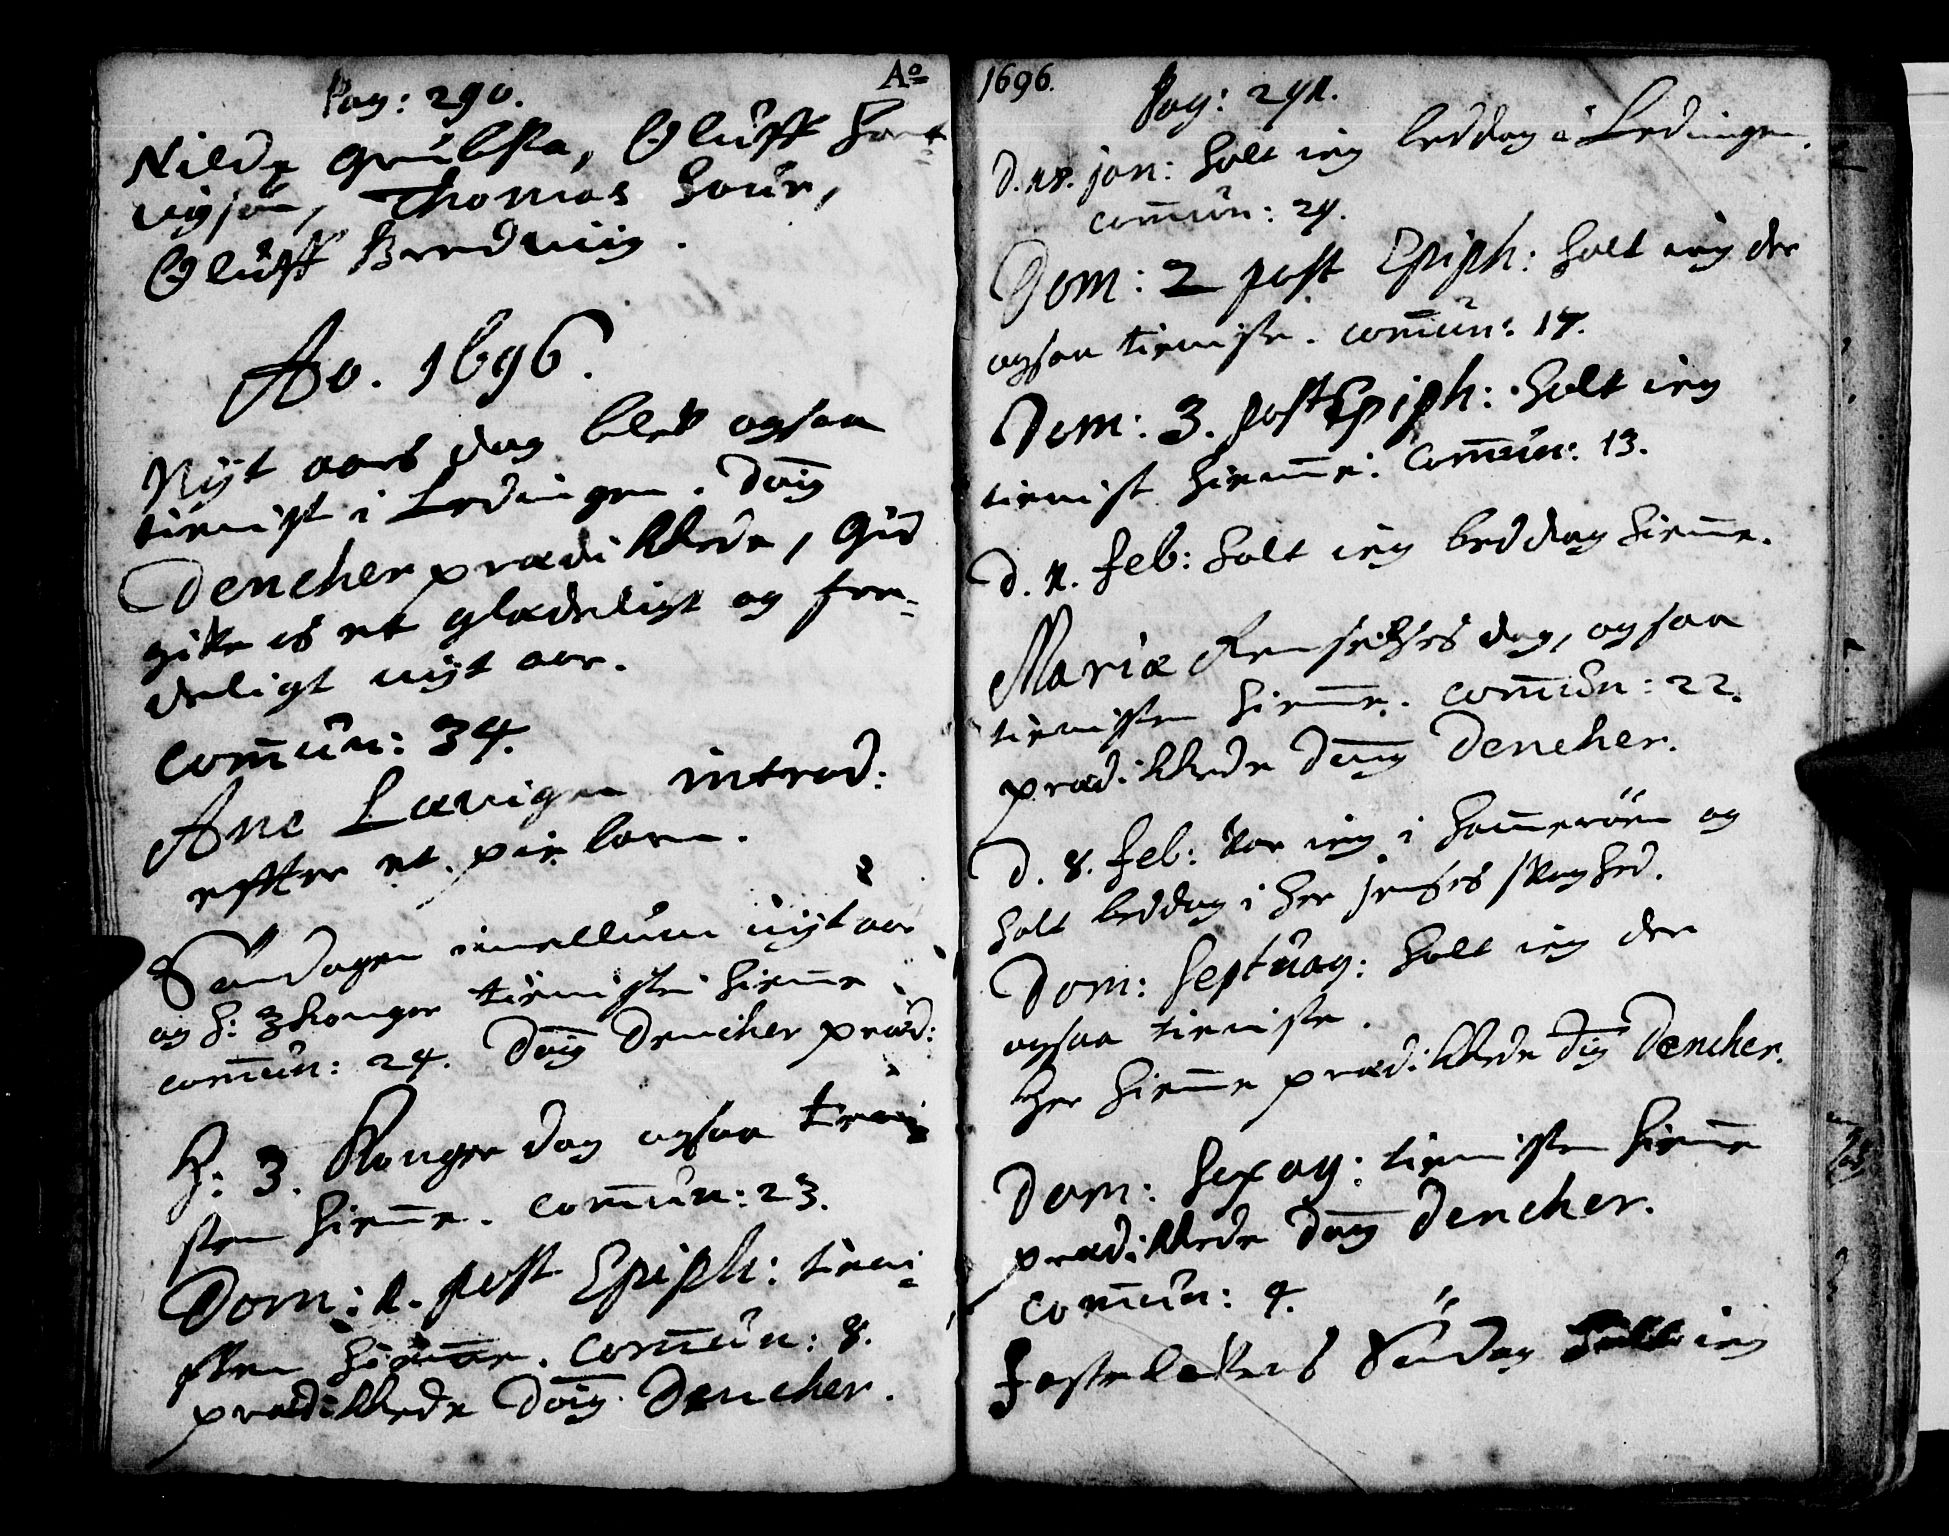 Pag: 290.
Ao
Nilds Grúbsta, Olúff Har-
vigsøn, Thomas Houer,
Olúff Bredviig.
Ao. 1696.
Nÿt aars dag bleff ogsaa
tienist i Lødingen. Dom̅
Dencher prædikkede, Gud
gifve os et glædeligt og fre-
deligt nÿt aar.
com̅ún: 34.
Ane Lævigen introd:
effter et pie barn.
Söndagen imellum nÿt aar
og H: 3 konger tienisten hiem̅e
com̅ún: 24. Dom̅ Dencher præd:
H: 3. Konger dag ogsaa tieni-
sten hiem̅e. com̅ún: 23.
Dom: 1. post Epiph: tieni-
sten hiem̅e. Com̅ún: 8.
prædikkede Dom̅ Dencher.
1696.
Pag: 291.
D. 18. jan: holt ieg beddag i Lødingen.
com̅ún: 24.
Dom: 2 post Epiph: holt ieg der
ogsaa tieniste. com̅ún: 17.
Dom: 3. post Epiph: holt ieg
tienist hiem̅e. Com̅ún: 13.
D. 1. feb: holt ieg beddag hiem̅e.
Mariæ Renselses dag, ogsaa
tienisten hiem̅e. com̅ún: 22.
prædikkede Dom̅ Dencher.
D. 8. feb: var ieg i Ham̅erøen og
holt beddag i Her Jenses svaghed.
Dom: Septúag: holt ieg der
ogsaa tieniste.
Her hiem̅e prædikkede Dom̅ Dencher.
Dom: Sexag: tienisten hiem̅e
prædikkede Dom̅ Dencher.
com̅ún: 9.
Fastelavens Söndag holt ieg